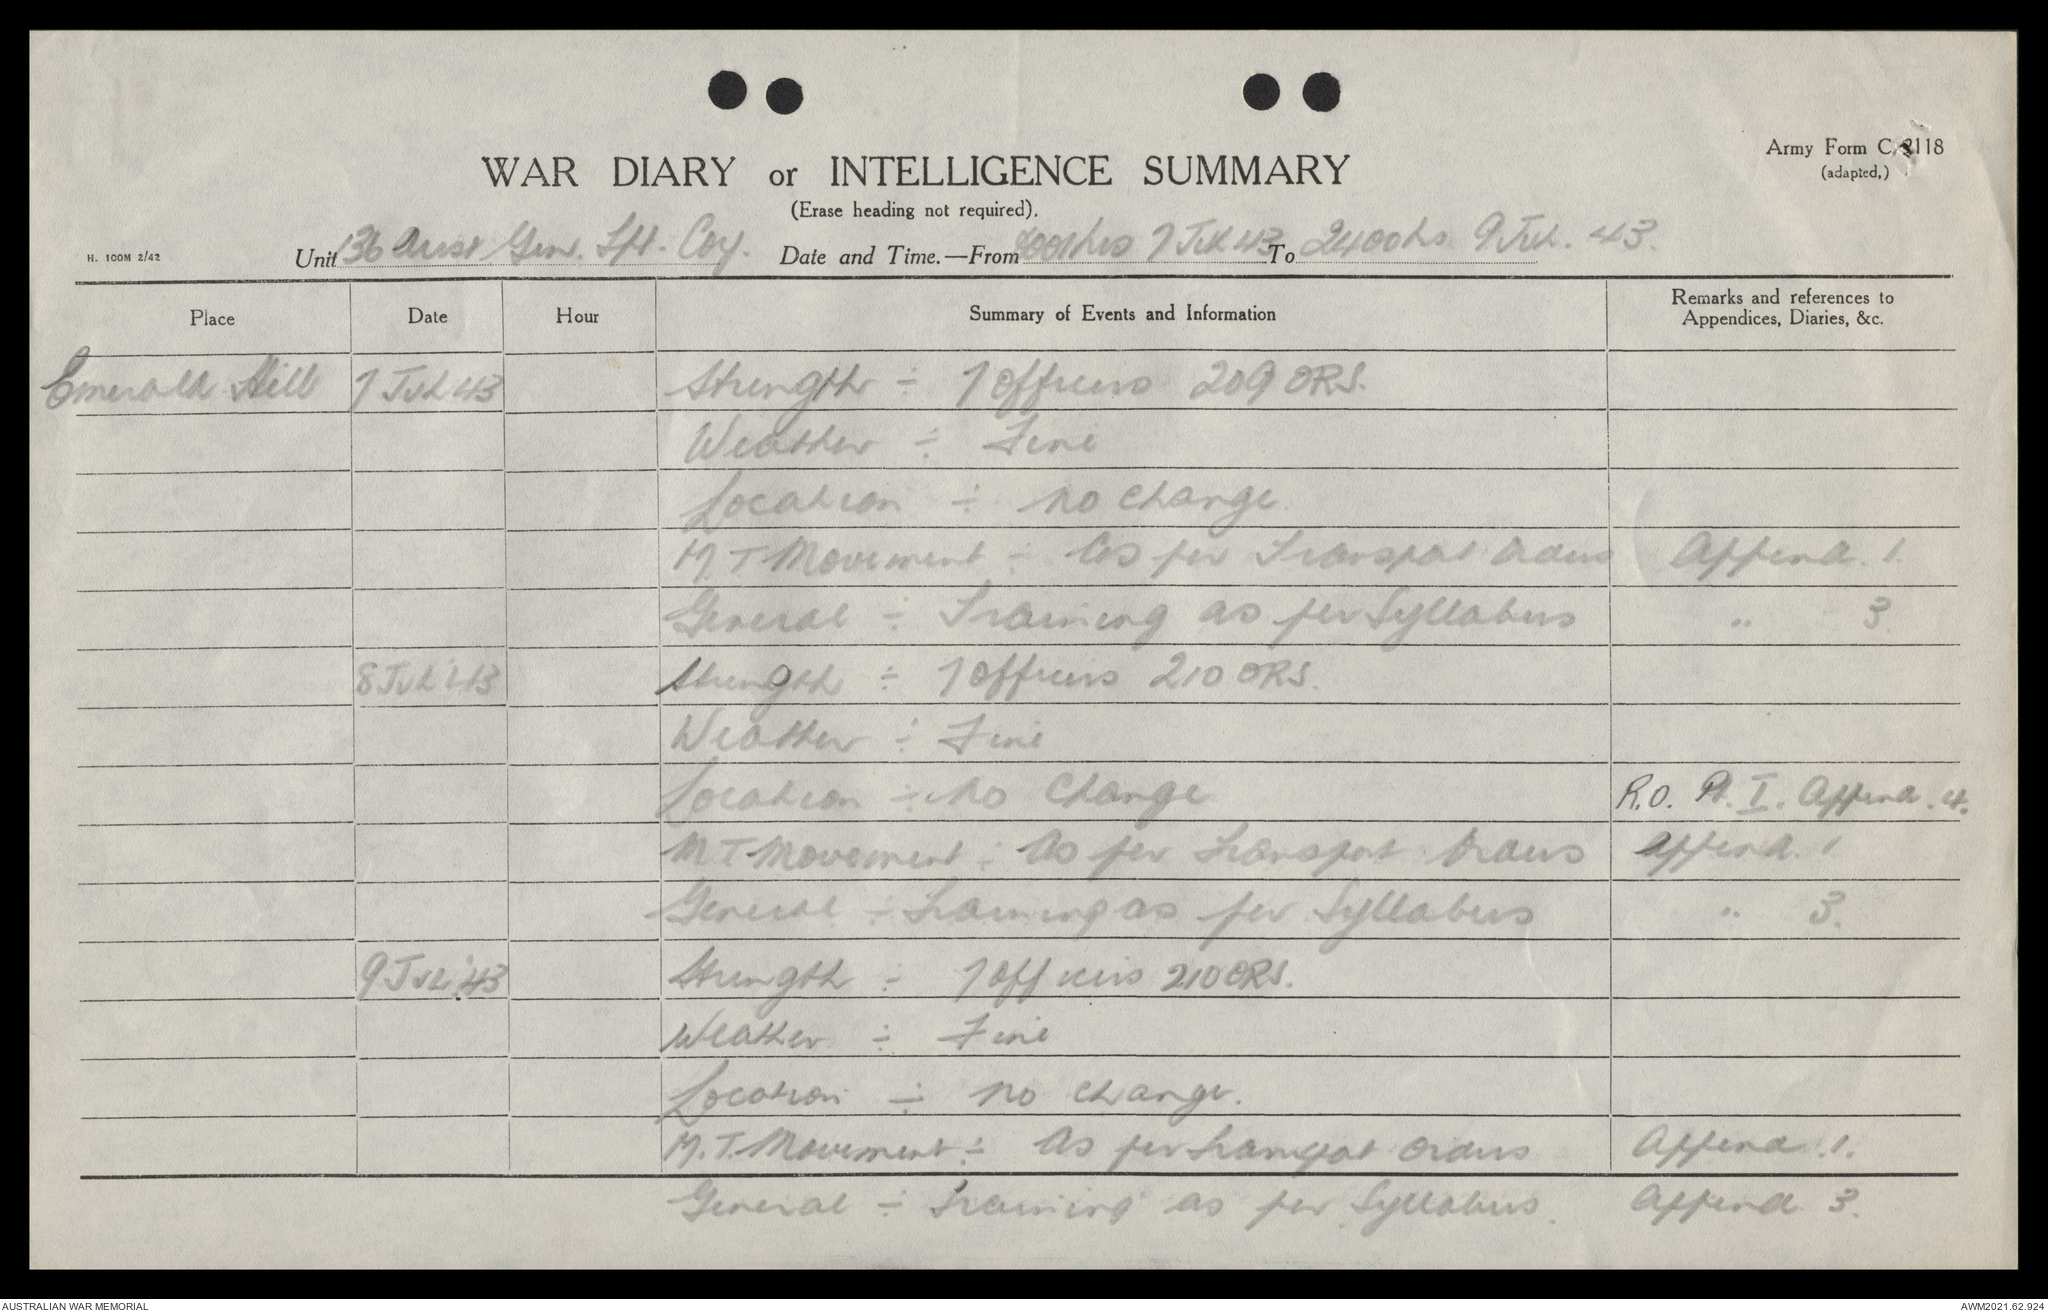 Army Form C.2118
(adapted,)
WAR DIARY or INTELLIGENCE SUMMARY
(Erase heading not required).
H. 100M 2/42
Unit 136 Aust Gen. Tpt. Coy. Date and Time.—From 0001hrs 7 Jul 43 To 2400hs 9 Jul. 43.
Place Date Hour Summary of Events and Information Remarks and references to
Appendices, Diaries, &c.
Emerald Hill 7 Jul 43 Strength ÷ 7 Officers 209 ORS.
Weather ÷ Fine
Location ÷ no change
M.T Movement ÷ As per Transport Orders Append. 1.
General ÷ Training as per Syllabus " 3.
8 Jul '43 Strength ÷ 7 Officers 210 ORS.
Weather ÷ Fine
Location ÷ No Change R.O. Pt. I. Append. 4.
M T Movement ÷ As per Transport Orders Append. 1
General ÷ Training as per Syllabus " 3.
9 Jul '43 Strength ÷ 7 Officers 210 ORS.
Weather ÷ Fine
Location ÷ no change.
M.T. Movement ÷ As per Transport Orders Append. 1.
General ÷ Training as per Syllabus. Append 3.
AUSTRALIAN WAR MEMORIAL AWM2021.62.924